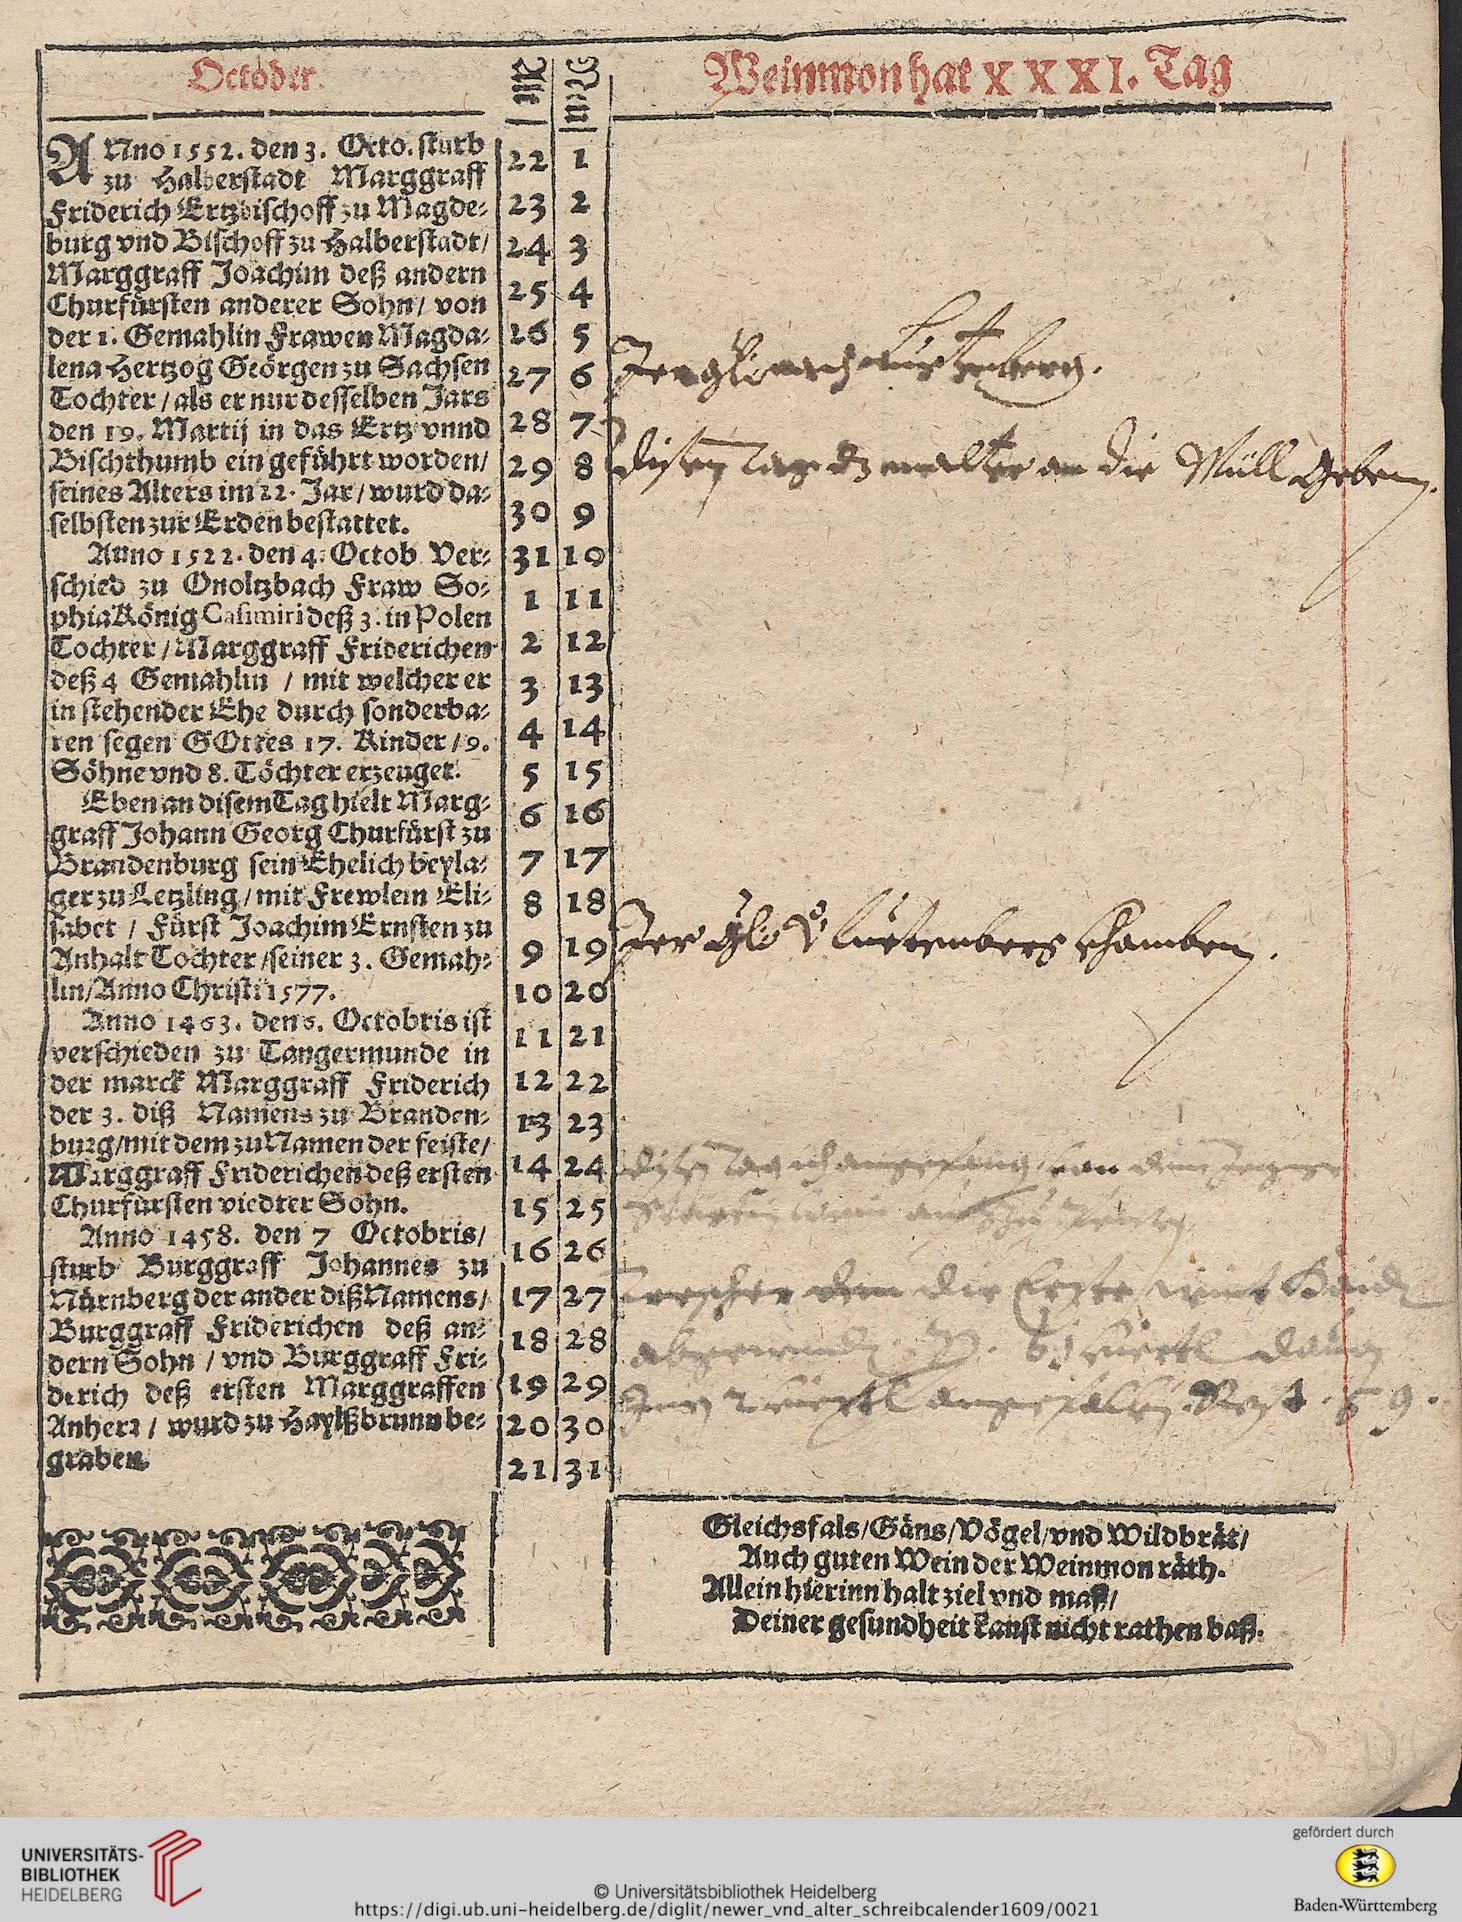 October.
Alte
New
Weinmon hat XXXI. Tag
ANno 1552. den 3. Octo. sturb
zu Halberstadt Marggraff
Friderich Ertzbischoff zu Magde-
burg vnd Bischoff zu Halberstadt/
Marggraff Joachim deß andern
Churfürsten anderer Sohn/ von
der 1. Gemahlin Frawen Magda-
lena Hertzog Geörgen zu Sachsen
Tochter/ als er nur desselben Jars
den 19. Martij in das Ertz vnnd
Bischthumb eingeführt worden/
seines Alters im 22. Jar/ wurd da-
selbsten zur Erden bestattet.
Anno 1522. den 4. Octob. Ver-
schied zu Onoltzbach Fraw So-
phia König Casimiri deß 3. in Polen
Tochter/ Marggraff Friderichen
deß 4 Gemahlin / mit welcher er
in stehender Ehe durch sonderba-
ren segen GOttes 17. Kinder/ 9.
Söhne vnd 8. Töchter erzeuget.
Eben an disem Tag hielt Marg-
graff Johann Georg Churfürst zu
Brandenburg sein Ehelich beyla-
ger zu Letzling/ mit Frewlein Eli-
sabet / Fürst Joachim Ernsten zu
Anhalt Tochter/ seiner 3. Gemah-
lin/ Anno Christi 1577.
Anno 1463. den 6. Octobris ist
verschieden zu Tangermunde in
der marck Marggraff Friderich
der 3. diß Namens zu Branden-
burg/ mit dem zu Namen der feiste/
Marggraff Friderichen deß ersten
Churfürsten viedter Sohn.
Anno 1458. den 7 Octobris/
sturb Burggraff Johannes zu
Nürnberg der ander diß Namens/
Burggraff Friderichen deß an-
dern Sohn / vnd Burggraff Fri-
derich deß ersten Marggraffen
Anherr/ wurd zu Haylßbrunn be-
graben.
22 1
23 2
24 3
25 4
26 5
27 6
28 7
29 8
30 9
31 10
1 11
2 12
3 13
4 14
5 15
6 16
7 17
8 18
9 19
10 20
11 21
12 22
13 23
14 24
15 25
16 26
17 27
18 28
19 29
20 30
21 31
disen Tag malter an die Müll geben.
Gleichsfals/ Gäns/ Vögel/ vnd Wildbrät/
Auch guten Wein der Weinmon räth.
Allein hierinn halt ziel vnd maß/
Deiner gesundheit kanst nicht rathen baß.
UNIVERSITÄTS-
BIBLIOTHEK
HEIDELBERG
© Universitätsbibliothek Heidelberg
https://digi.ub.uni-heidelberg.de/diglit/newer_vnd_alter_schreibcalender1609/0021
gefördert durch
Baden-Württemberg